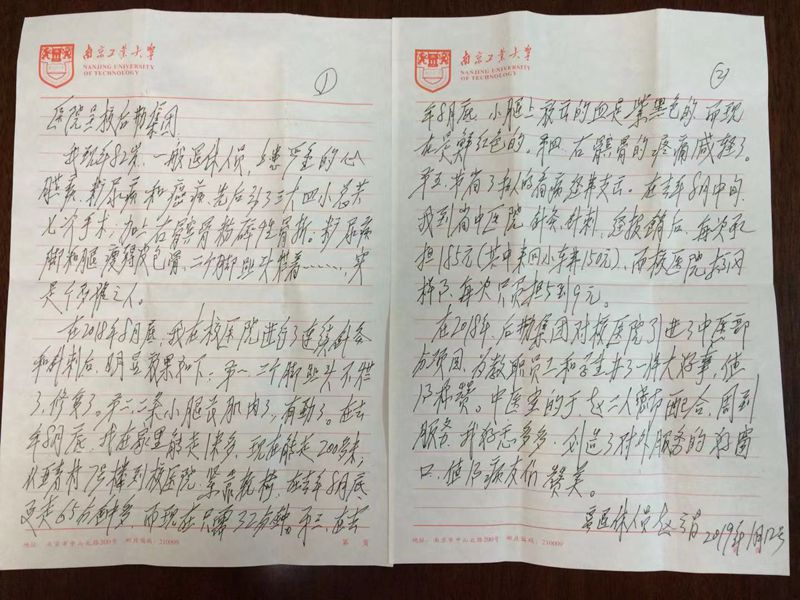 南京工业大学
NANJING UNIVERSITY
OF TECHNOLOGY
①
医院呈校后勤集团
我现年82岁,一般退休人员,患严重的心
脏病、糖尿病和癌症,先后引了三大四小总共
七次手术,加上右髋骨粉碎性骨折。糖尿病
脚和腿瘦得皮包骨,二个脚趾头烂着……,实
是个不健之人。
在2018年8月底,我在校医院进行了连续针灸
和针刺后,明显效果如下:第一、二个脚趾头不烂
了,修复了。第二、二条小腿长肌肉了,有劲了。在去
年8月底,我在家里能走1米多,现在能走200多米,
从 村7号楼到校医院,紧靠 ,在去年8月底
要走65分钟多,而现在只需32分钟。第三,在去
地址:南京市中山北路200号 邮政编码:210009
第 页
南京工业大学
NANJING UNIVERSITY
OF TECHNOLOGY
②
年8月底,小腿上放出的血是紫黑色的,而现
在是鲜红色的。第四、右髋骨的疼痛减轻了。
第五、节省了本人的看病经费支出。在去年8月中旬,
我到省中医院针灸、针刺,返报销后,每次承
担185元(其中来回小车费150元),而校医院 同
样 ,每次只负担5到9元。
在2018年,后勤集团对校医院引进了中医部
方项目,为教职员工和学生办了一件大好事,值
得称赞。中医室的于、赵二人密切配合,周到
服务,我好感多多,创造了对外服务的新窗
口,值得病友们赞美。
退休人员 赵 2019年1月12号
地址:南京市中山北路200号 邮政编码:210009